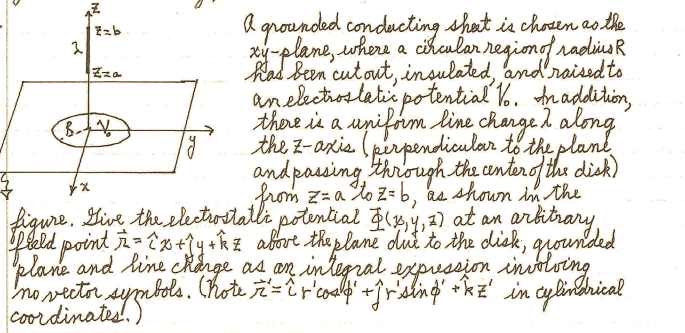 z
z=b
λ
z=a
R
V₀
y
x
A grounded conducting sheet is chosen as the
xy-plane, where a circular region of radius R
has been cut out, insulated, and raised to
an electrostatic potential V₀. In addition,
there is a uniform line charge λ along
the z-axis (perpendicular to the plane
and passing through the center of the disk)
from z=a to z=b, as shown in the
figure. Give the electrostatic potential Φ(x,y,z) at an arbitrary
field point r⃗ = îx+ĵy+k̂z above the plane due to the disk, grounded
plane and line charge as an integral expression involving
no vector symbols. (Note r⃗'=î r'cosφ' +ĵ r'sinφ' + k̂z' in cylindrical
coordinates.)